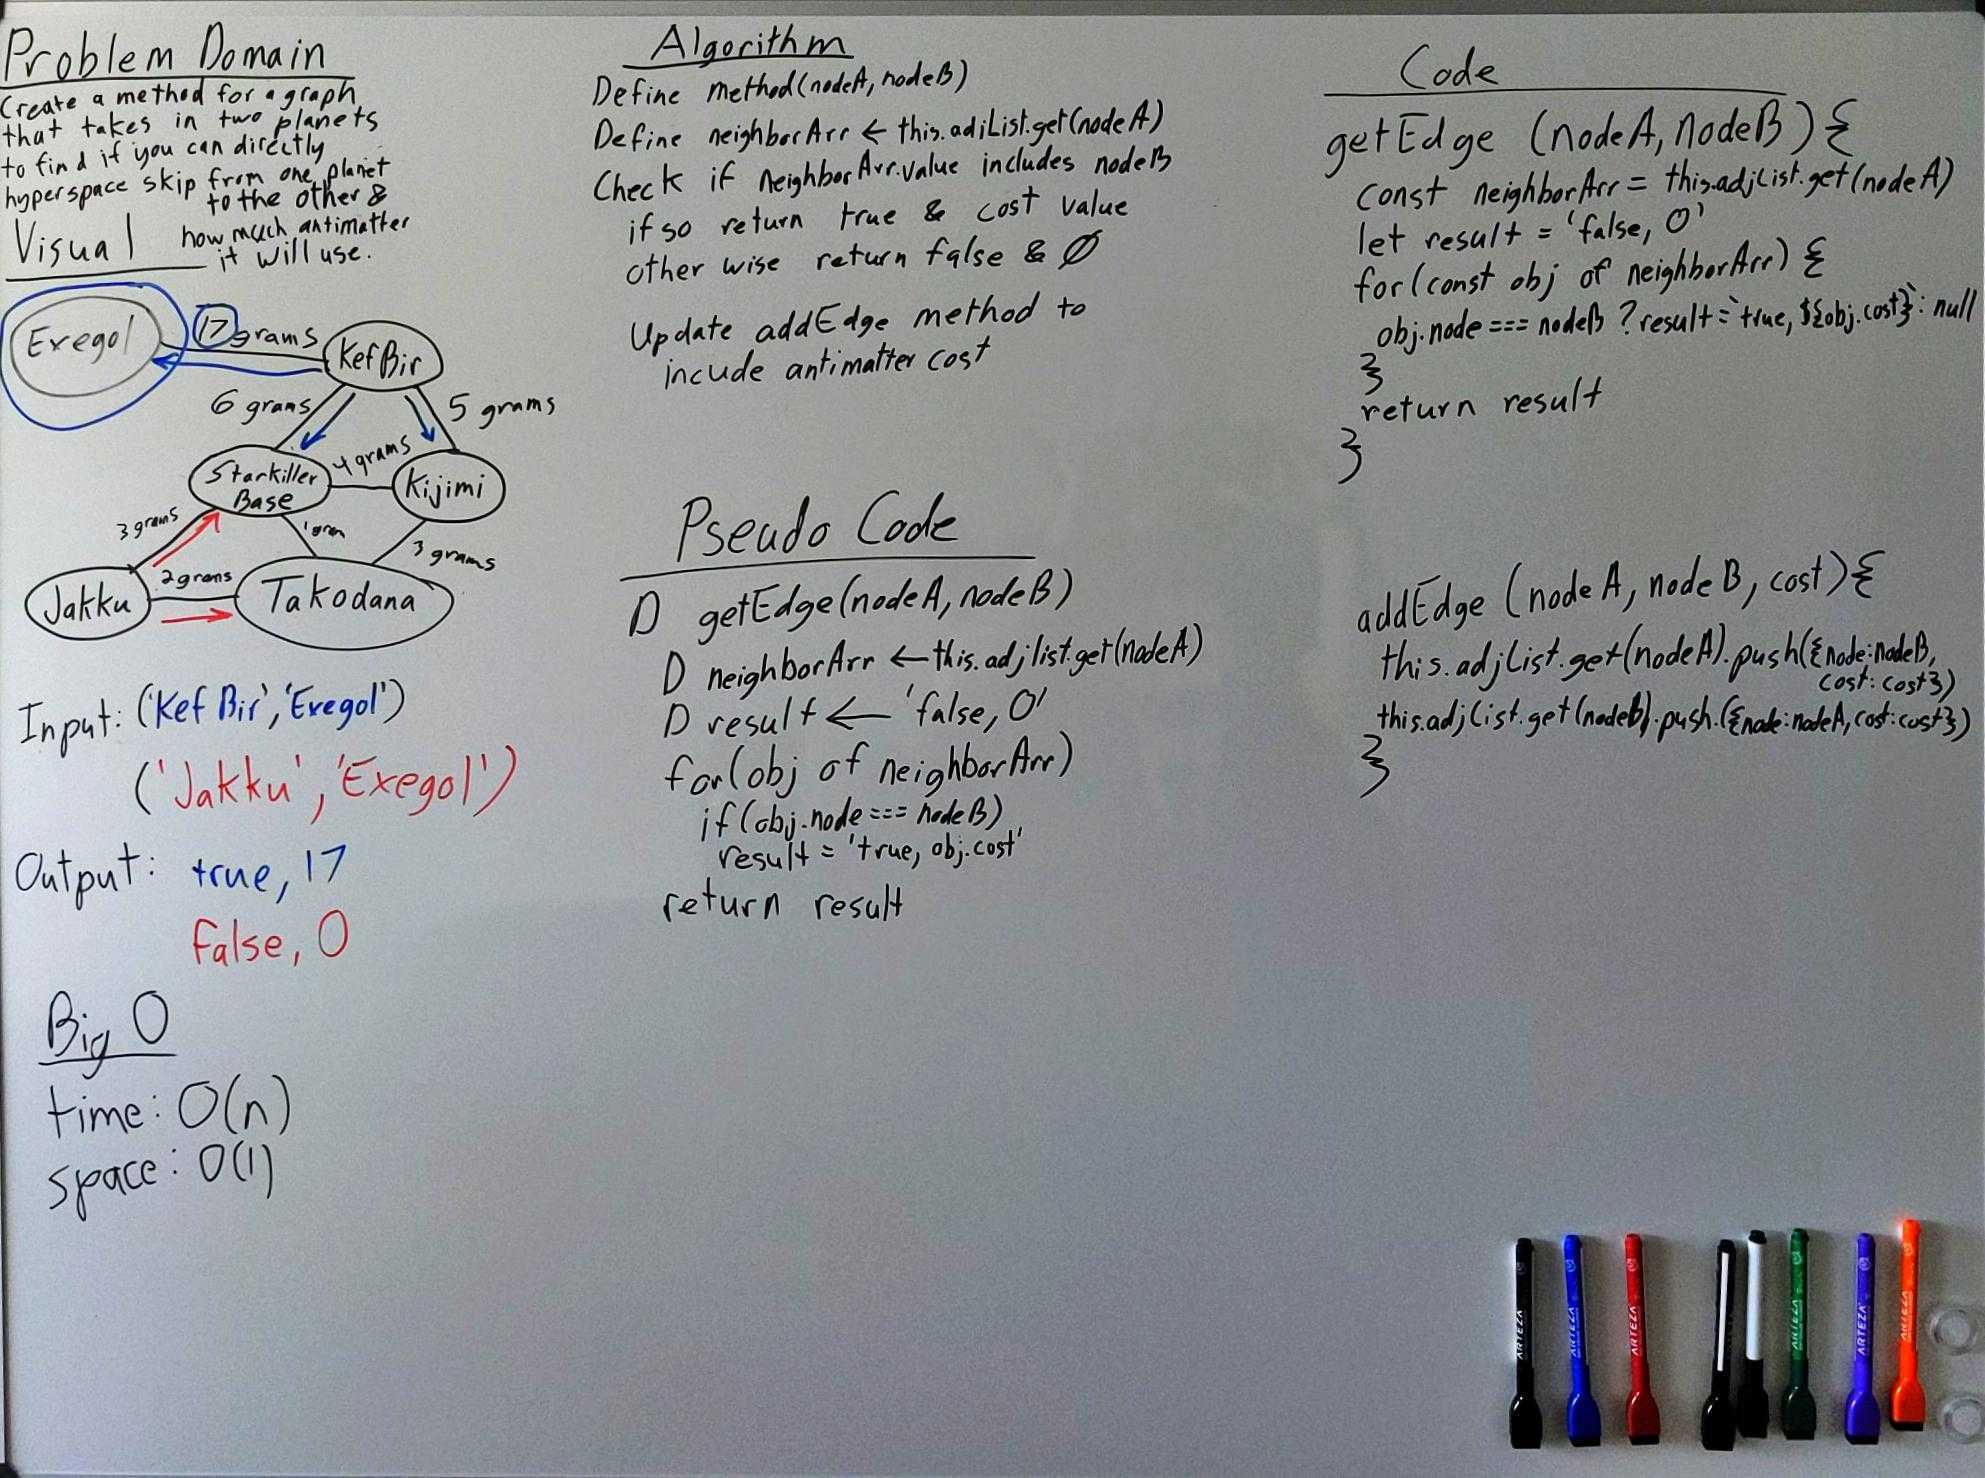 Problem Domain
Create a method for a graph
that takes in two planets
to find if you can directly
hyperspace skip from one planet
to the other &
how much antimatter
it will use.
Visual
Exegol
17 grams
Kef Bir
6 grams
5 grams
Starkiller
Base
4 grams
Kijimi
3 grams
1 gram
3 grams
Jakku
2 grams
Takodana
Input: ('Kef Bir', 'Exegol')
('Jakku', 'Exegol')
Output: true, 17
false, 0
Big O
time: O(n)
space: O(1)
Algorithm
Define method(nodeA, nodeB)
Define neighborArr ← this.adjList.get(nodeA)
Check if neighborArr.value includes nodeB
if so return true & cost value
other wise return false & Ø
Update addEdge method to
incude antimatter cost
Pseudo Code
D getEdge(nodeA, nodeB)
D neighborArr ← this.adjlist.get(nodeA)
D result ← 'false, 0'
for(obj of neighborArr)
if(obj.node === nodeB)
result = 'true, obj.cost'
return result
Code
getEdge (nodeA, nodeB) {
const neighborArr = this.adjList.get(nodeA)
let result = 'false, 0'
for(const obj of neighborArr) {
obj.node === nodeB ? result = `true, ${obj.cost}` : null
}
return result
}
addEdge (nodeA, nodeB, cost){
this.adjList.get(nodeA).push({node:nodeB,
cost:cost})
this.adjList.get(nodeB).push.({node:nodeA, cost:cost})
}
ARTEZA
ARTEZA
ARTEZA
ARTEZA
ARTEZA
ARTEZA